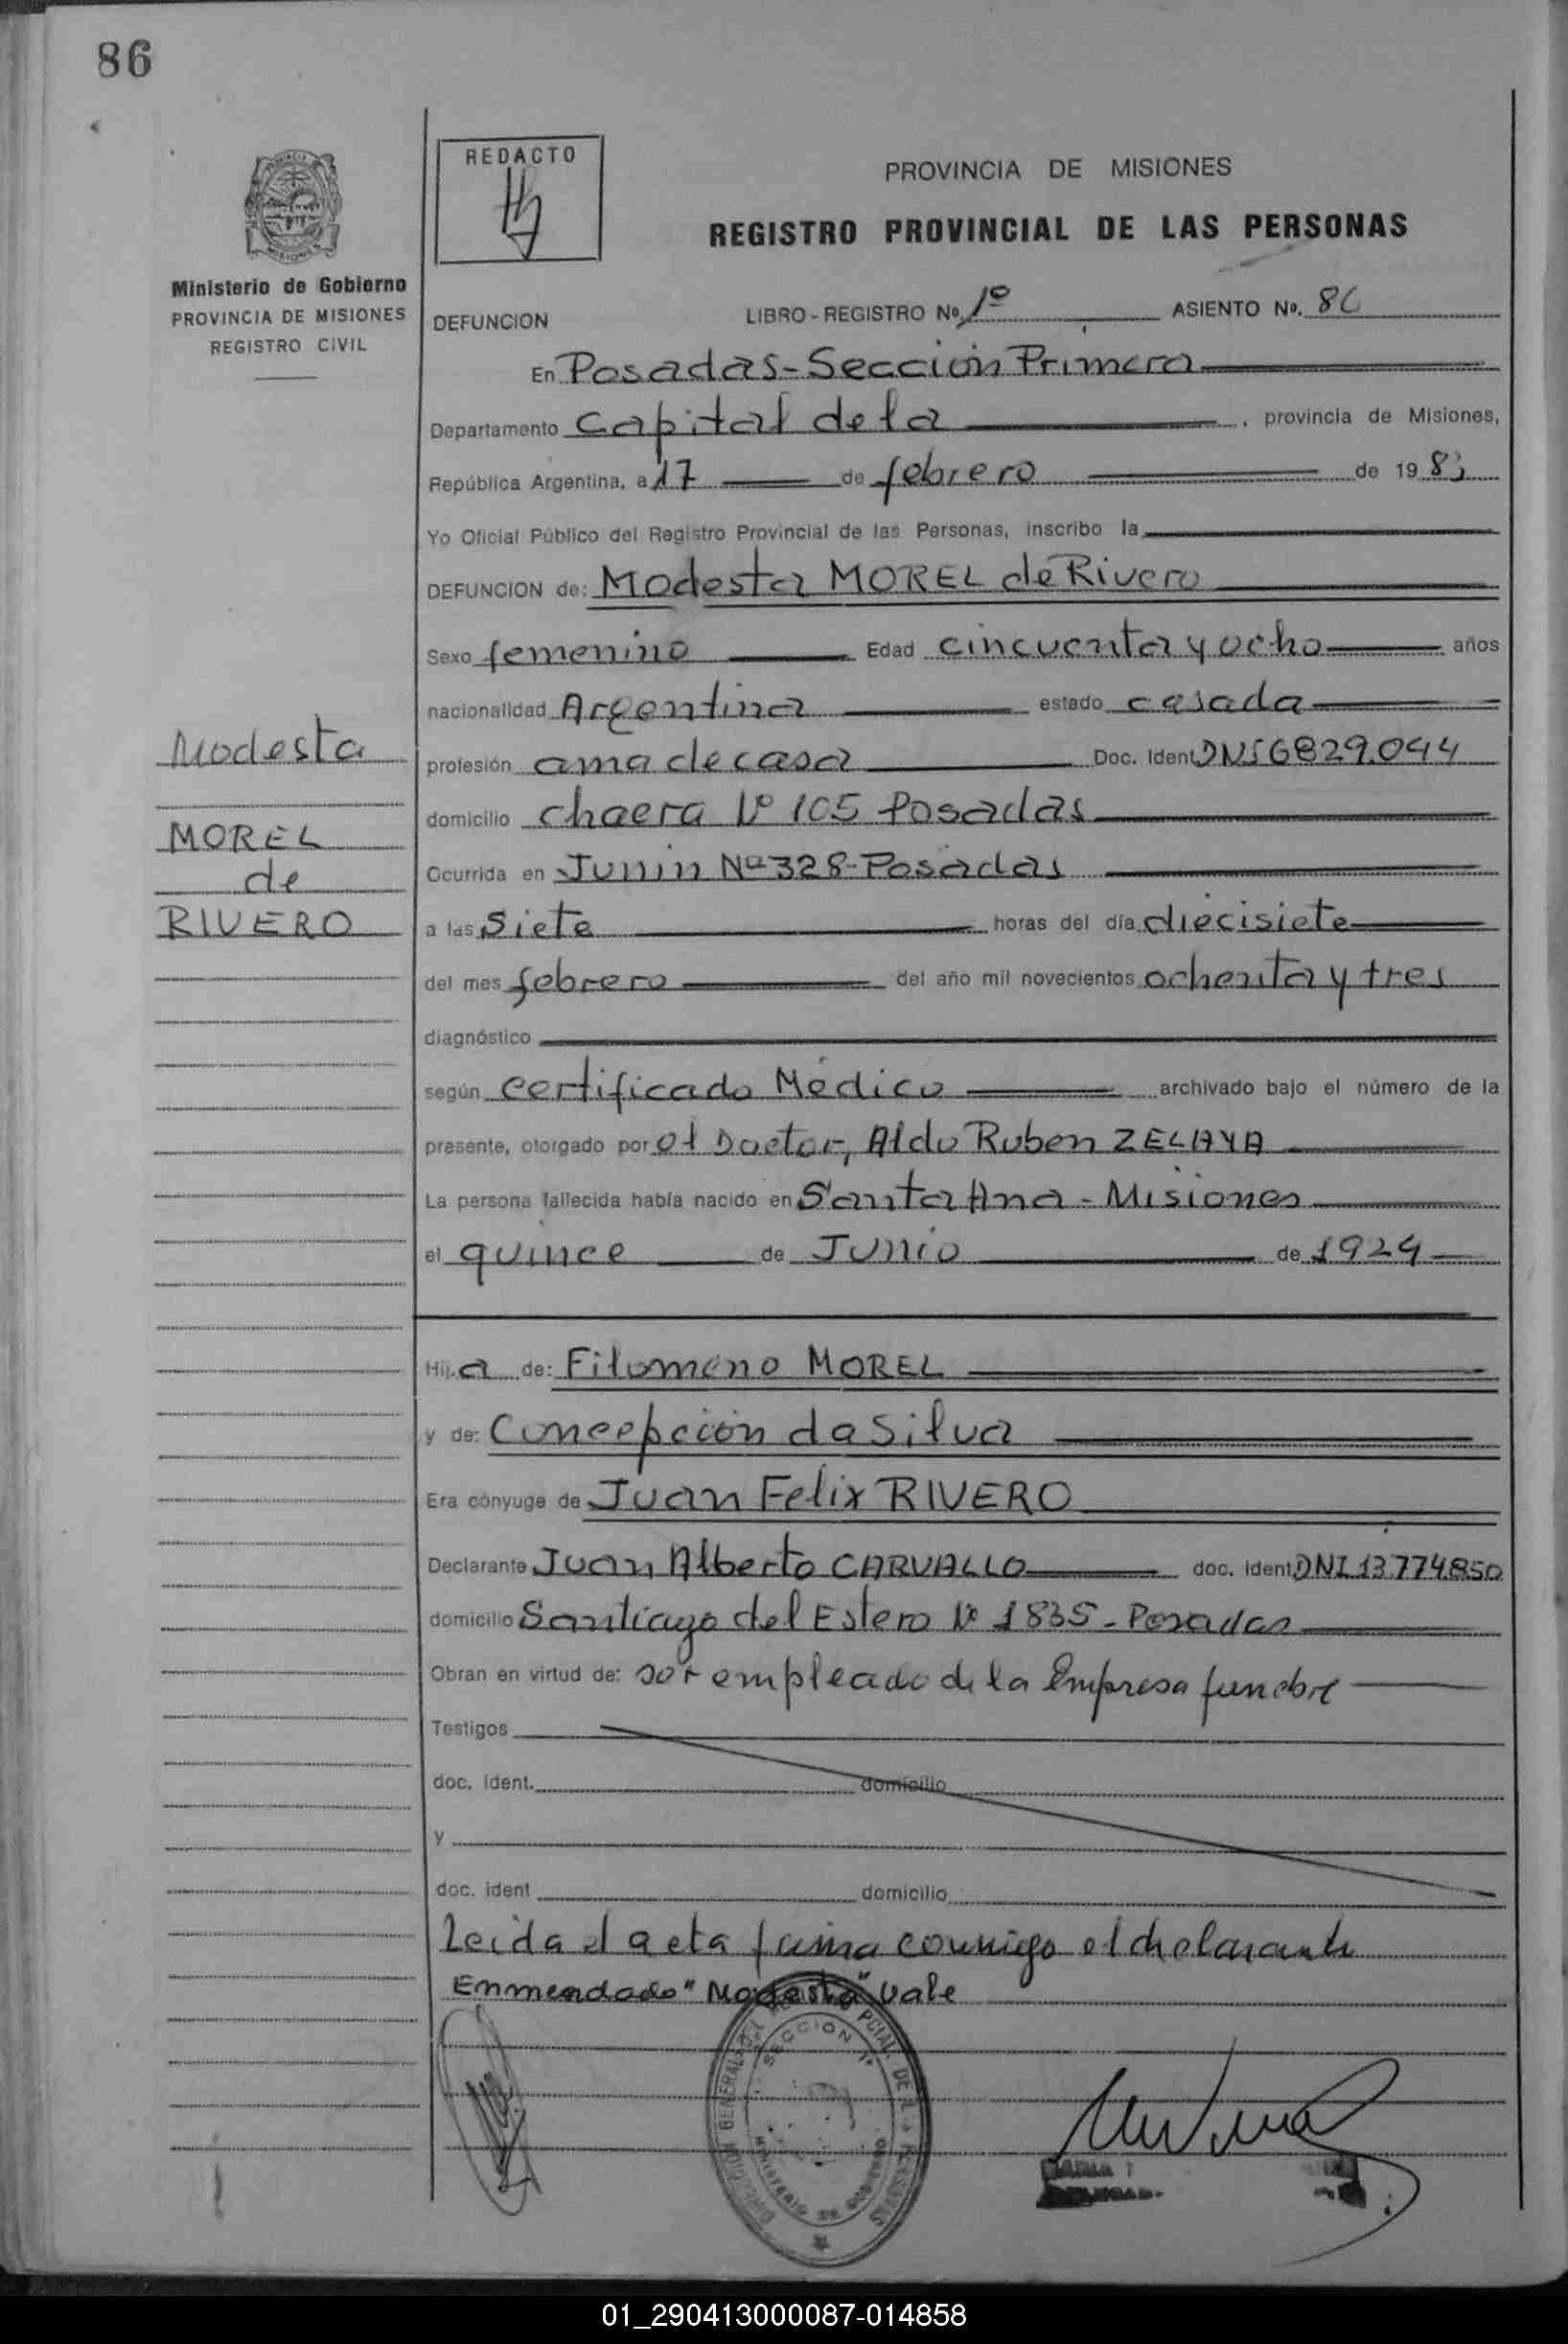 86
REDACTO
PROVINCIA DE MISIONES
REGISTRO PROVINCIAL DE LAS PERSONAS
Ministerio de Gobierno
PROVINCIA DE MISIONES
REGISTRO CIVIL
DEFUNCION LIBRO - REGISTRO Nº 1º ASIENTO Nº. 86
En Posadas - Sección Primera
Departamento Capital de la, provincia de Misiones,
República Argentina, a 17 de febrero de 1983
Yo Oficial Público del Registro Provincial de las Personas, inscribo la
DEFUNCION de: Modesta MOREL de Rivero
Sexo femenino Edad cincuenta y ocho años
nacionalidad Argentina estado casada
Modesta
MOREL
de
RIVERO
profesión ama de casa Doc. Ident DNI 6829.044
domicilio chacra Nº 105 Posadas
Ocurrida en Junin Nº 328 - Posadas
a las Siete horas del día diecisiete
del mes febrero del año mil novecientos ochenta y tres
diagnóstico
según certificado Médico archivado bajo el número de la
presente, otorgado por el Doctor, Aldo Ruben ZELAYA
La persona fallecida había nacido en Santa Ana - Misiones
el quince de Junio de 1924
Hij.a de: Filomeno MOREL
y de: Concepción da Silva
Era cónyuge de Juan Felix RIVERO
Declarante Juan Alberto CARVALLO doc. ident DNI 13.774.850
domicilio Santiago del Estero Nº 1835 - Posadas
Obran en virtud de: ser empleado de la Empresa funebre
Testigos
doc. ident. domicilio
y
doc. ident domicilio
Leida el acta firma conmigo el declarante
Enmendado "Modesta" Vale
SECCION 1ª
DIRECCION GENERAL DEL REGISTRO PCIAL. DE LAS PERSONAS
MINISTERIO DE GOBIERNO
01_290413000087-014858